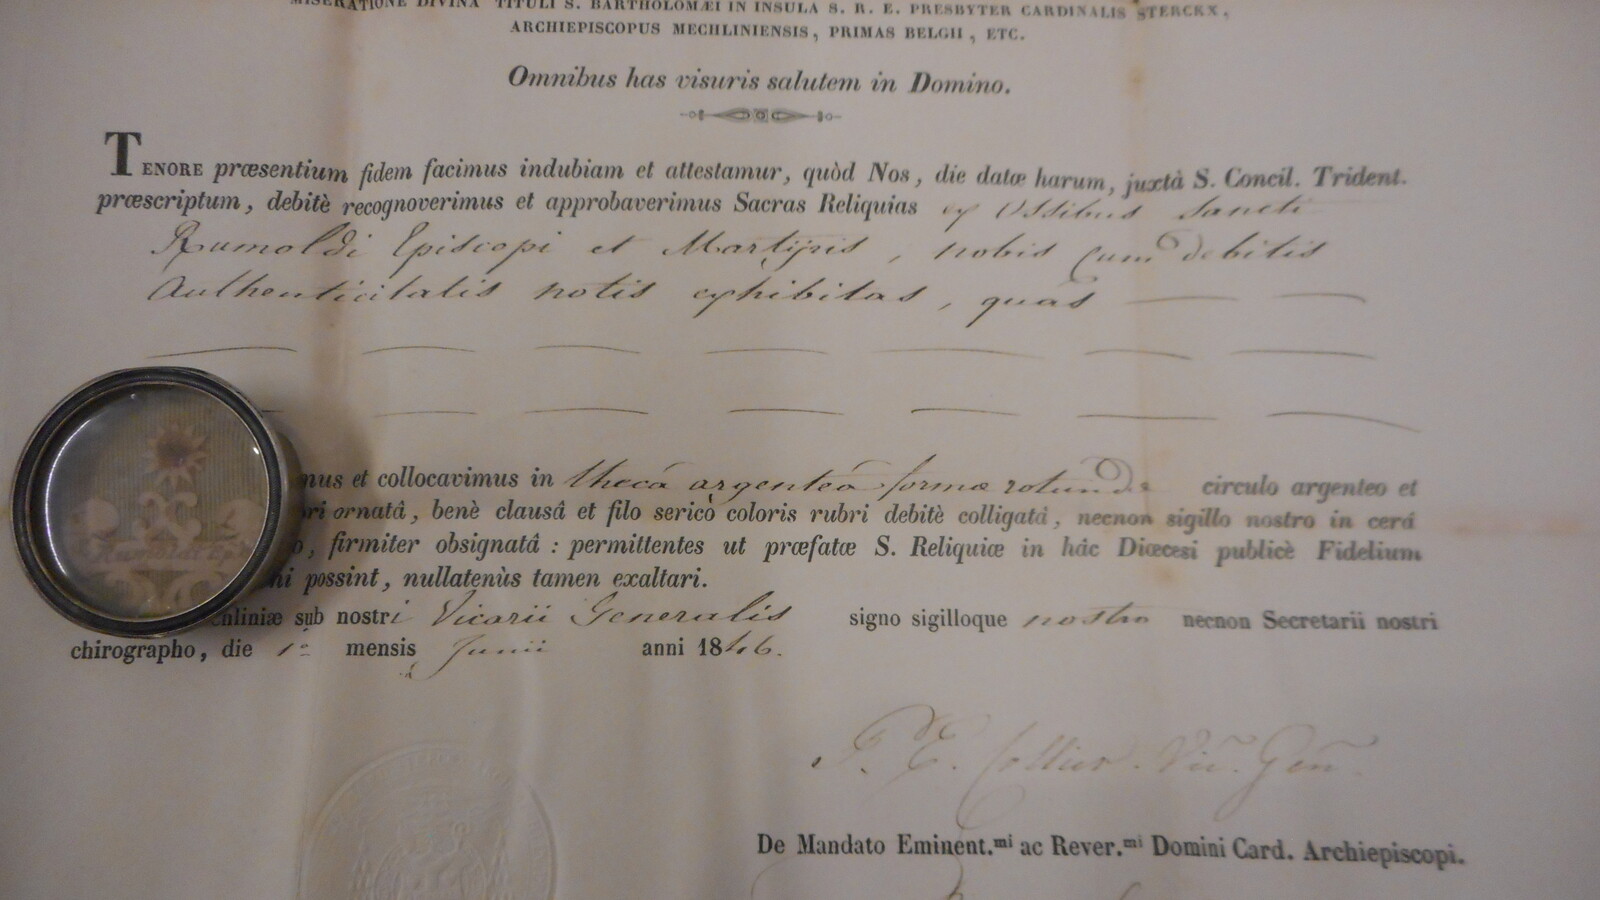 MISERATIONE DIVINA TITULI S. BARTHOLOMÆI IN INSULA S. R. E. PRESBYTER CARDINALIS STERCKX,
ARCHIEPISCOPUS MECHLINIENSIS, PRIMAS BELGII, ETC.
Omnibus has visuris salutem in Domino.
TENORE præsentium fidem facimus indubiam et attestamur, quòd Nos, die datæ harum, juxtà S. Concil. Trident.
præscriptum, debitè recognoverimus et approbaverimus Sacras Reliquias ex Ossibus Sancti
Rumoldi Episcopi et Martyris, nobis cum debitis
Authenticitatis notis exhibitas, quas
mus et collocavimus in thecâ argenteâ formæ rotundæ circulo argenteo et
ri ornatâ, benè clausâ et filo serico coloris rubri debitè colligatâ, necnon sigillo nostro in cerâ
o, firmiter obsignatâ : permittentes ut præfatæ S. Reliquiæ in hâc Diœcesi publicè Fidelium
ni possint, nullatenùs tamen exaltari.
chliniæ sub nostri Vicarii Generalis signo sigilloque nostro necnon Secretarii nostri
chirographo, die 1â mensis Junii anni 1846.
Vic. Gen.
De Mandato Eminent.mi ac Rever.mi Domini Card. Archiepiscopi.